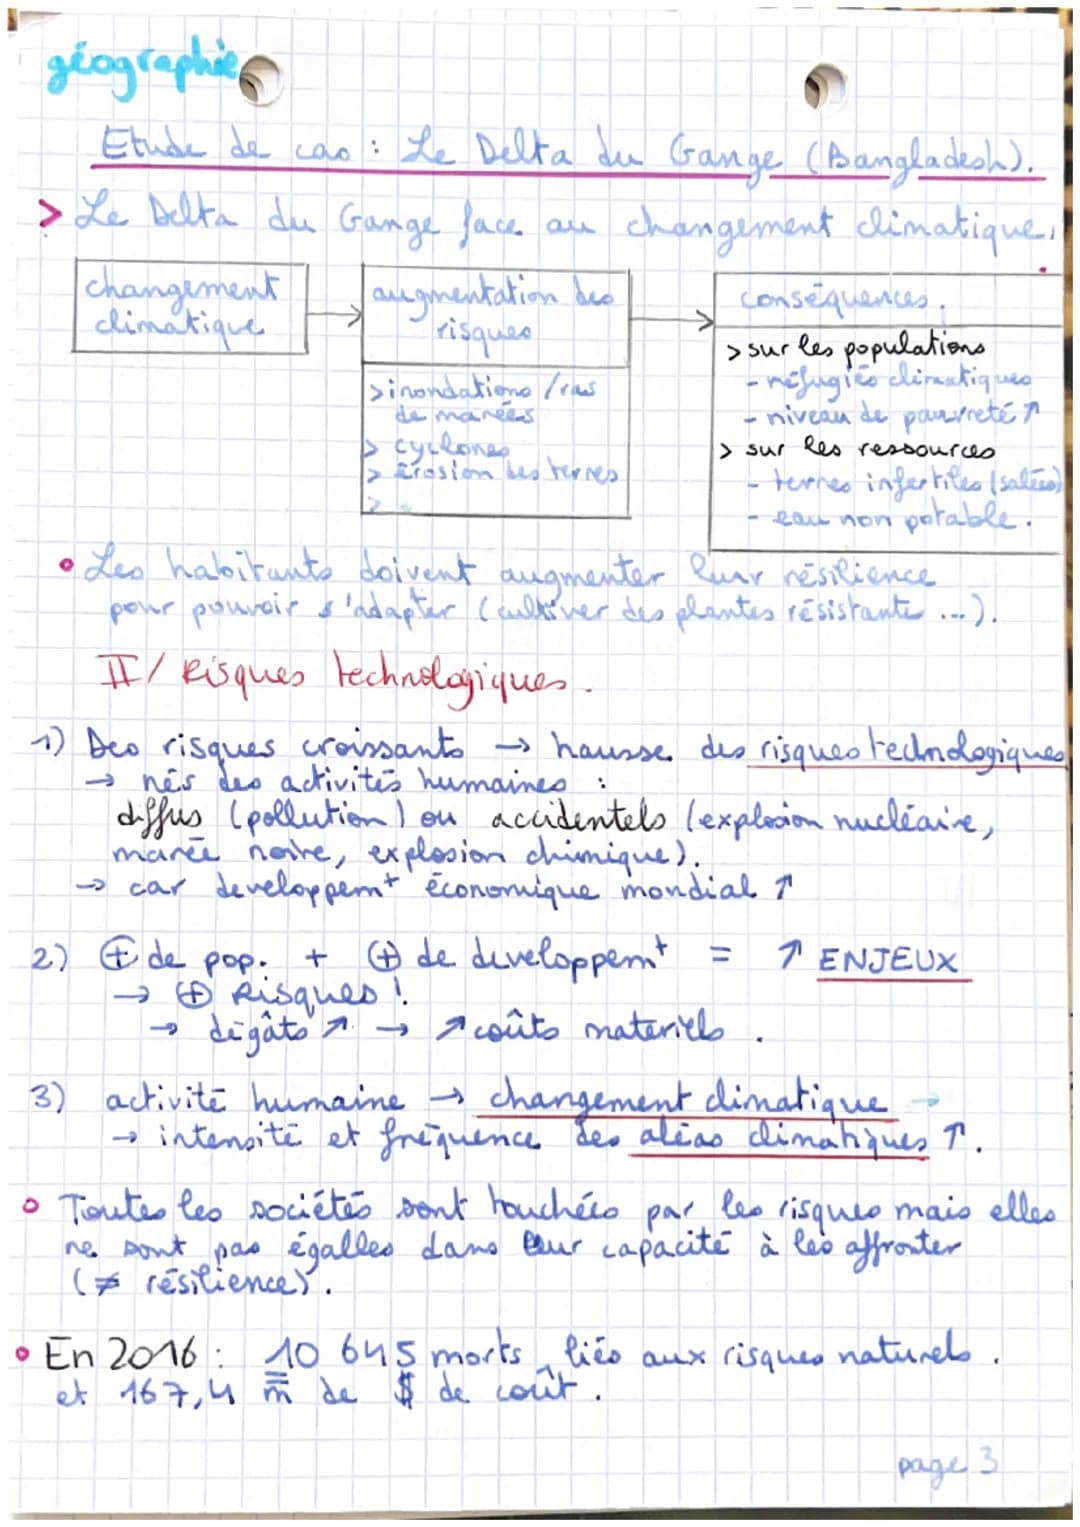 géographie
Etude de cas : Le Delta du Gange (Bangladesh).
> Le Delta du Gange face au changement climatique.
changement
climatique
augmentation des
risques
> inondations / ras
de marées
> cyclones
> Erosion des terres
>
conséquences.
> sur les populations
- réfugiés climatiques
- niveau de pauvreté ↗
> sur les ressources
- terres infertiles (salées)
- eau non potable.
• Les habitants doivent augmenter leur résilience
pour pouvoir s'adapter (cultiver des plantes résistante ...).
II/ Risques technologiques.
1) Des risques croissants → hausse des risques technologiques
→ nés des activités humaines :
diffus (pollution) ou accidentels (explosion nucléaire,
marée noire, explosion chimique).
→ car developpemt économique mondial ↑
2) ⊕ de pop. + ⊕ de developpemt = ↗ ENJEUX
→ ⊕ Risques !
→ dégâts ↗ → ↗ coûts materiels .
3) activité humaine → changement climatique →
→ intensité et fréquence des aléas climatiques ↑.
• Toutes les sociétés sont touchées par les risques mais elles
ne sont pas égalles dans leur capacité à les affronter
(≠ résilience).
• En 2016 : 10 645 morts liés aux risques naturels .
et 167,4 m de $ de coût .
page 3